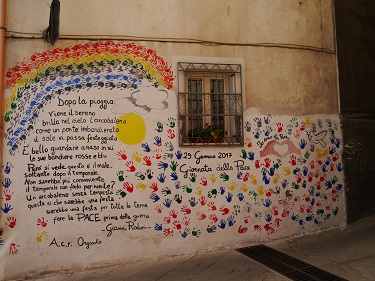 Dopo la pioggia
Viene il sereno
brilla nel cielo l'arcobaleno
come un ponte imbandierato
il sole vi passa festeggiato
È bello guardare a naso in su
le sue bandiere rosse e blu
Però si vede, questo è il male
soltanto dopo il temporale.
Non sarebbe più conveniente
il temporale non farlo per niente?
Un arcobaleno senza tempesta
questa sì che sarebbe una festa
sarebbe una festa per tutta la terra
fare la PACE prima della guerra
-Gianni Rodari-
A.c.r. Orgosolo
29 Gennaio 2017
Giornata della Pace